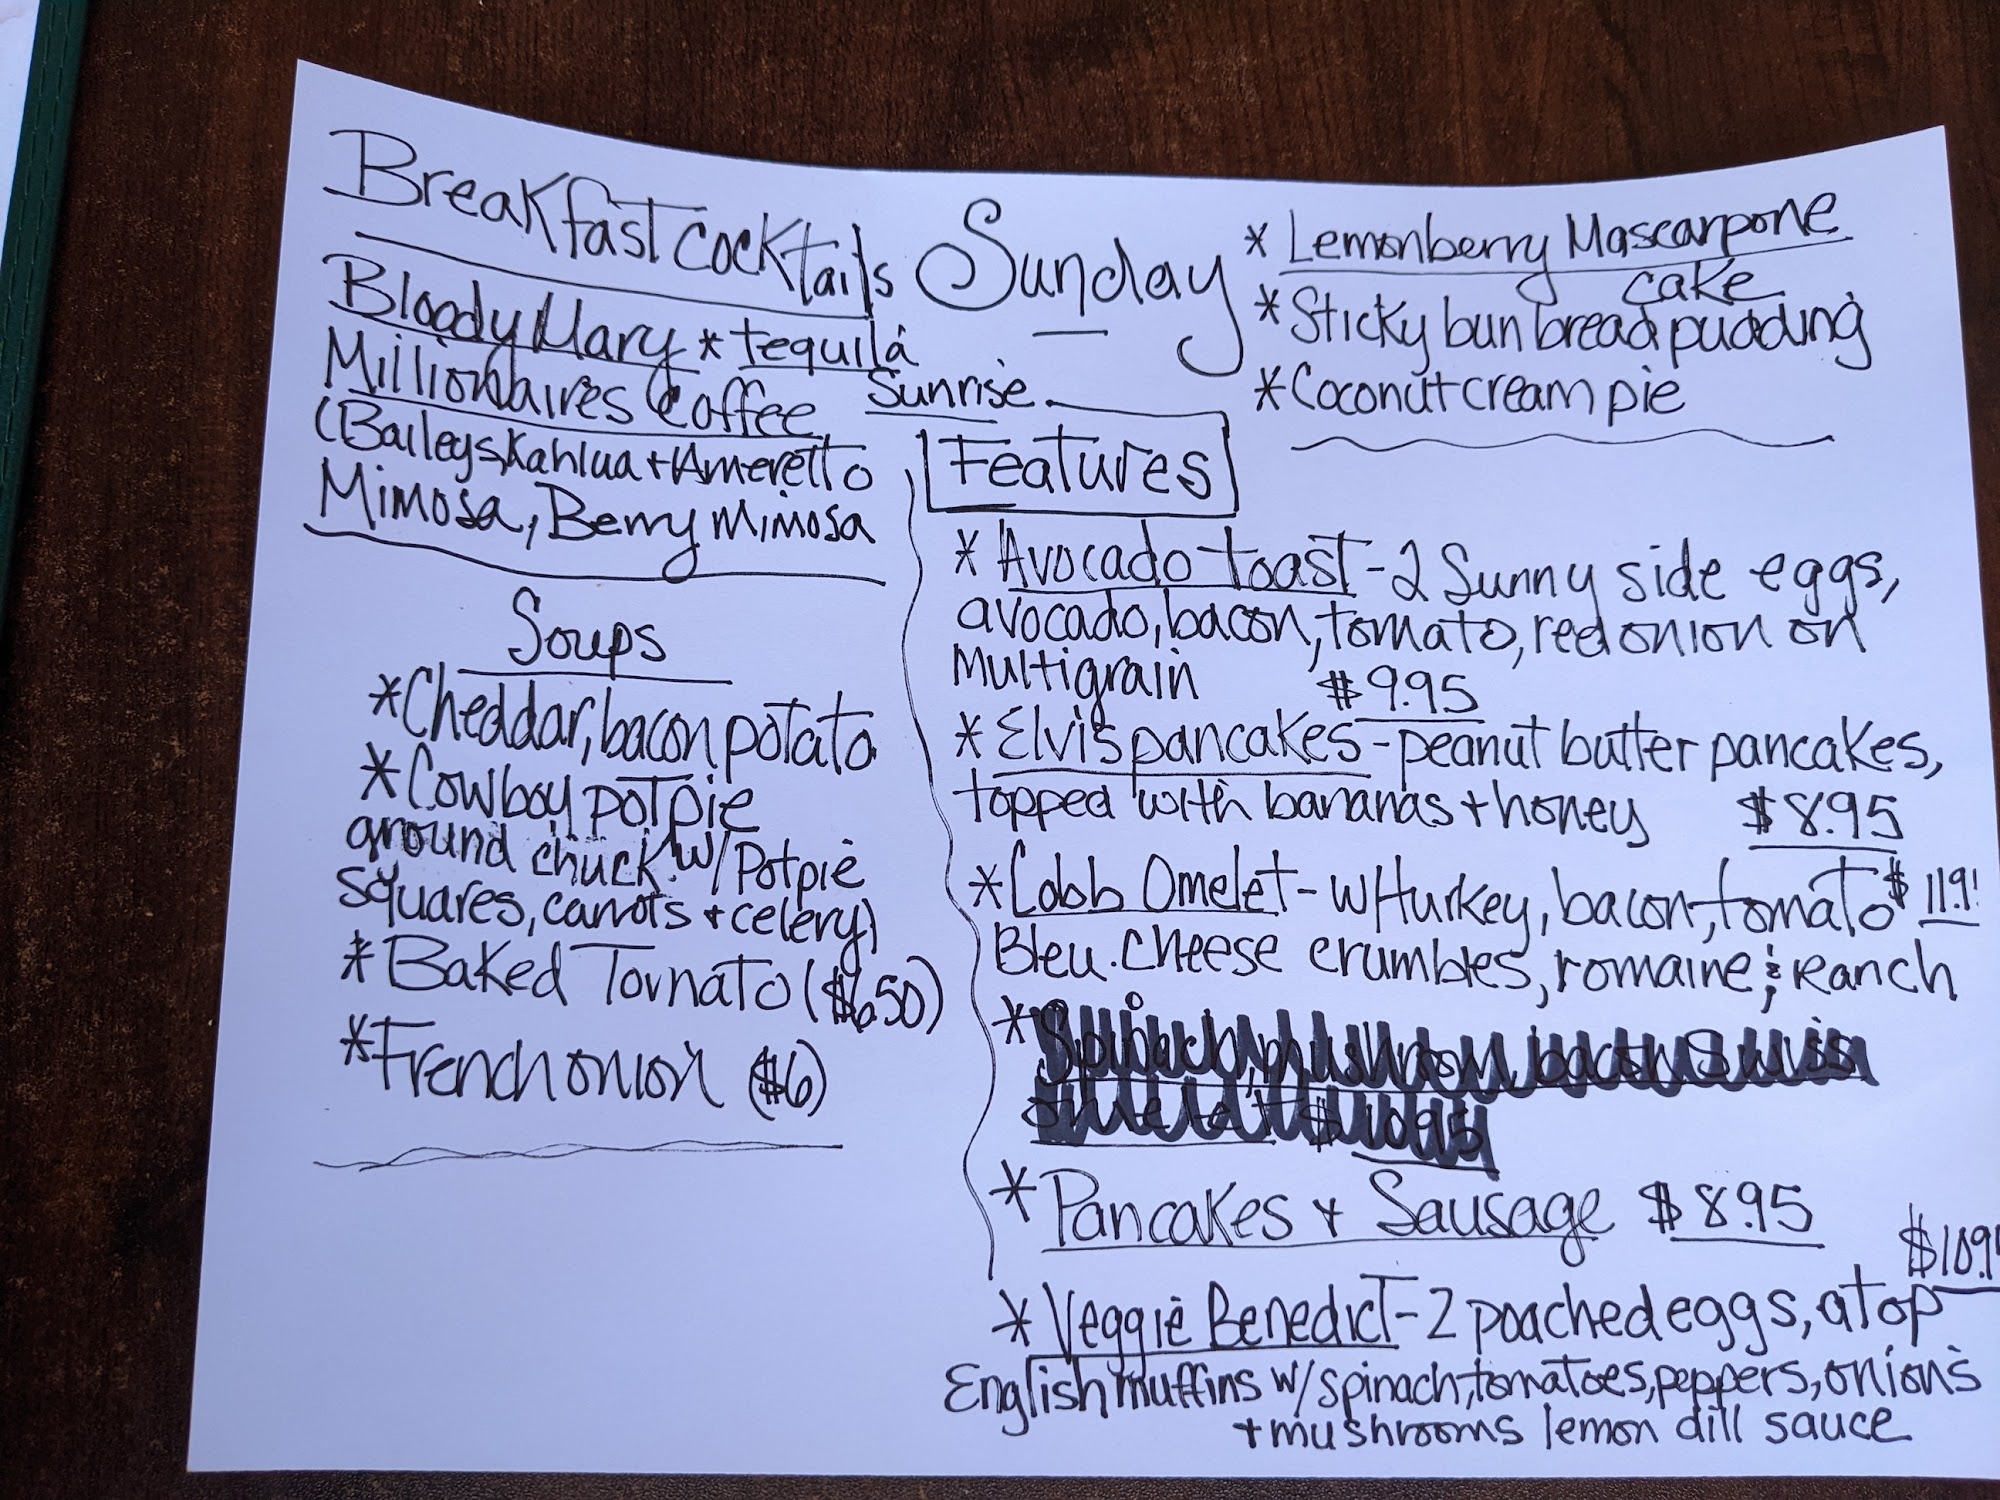 Breakfast cocktails
Bloody Mary * tequila
Sunrise
Millionaires Coffee
(Baileys, Kahlua + Ameretto
Mimosa, Berry mimosa
Soups
* Cheddar, bacon potato
* Cowboy potpie
ground chuck w/ Potpie
squares, carrots + celery)
* Baked Tomato ($6.50)
* French onion ($6)
Sunday
* Lemonberry Mascarpone
cake
* Sticky bun bread pudding
* Coconut cream pie
Features
* Avocado toast - 2 Sunny side eggs,
avocado, bacon, tomato, red onion on
Multigrain $9.95
* Elvis pancakes - peanut butter pancakes,
topped with bananas + honey $8.95
* Cobb Omelet - w/turkey, bacon, tomato $11.9
Bleu cheese crumbles, romaine & Ranch
* Spinach, mushroom, bacon Swiss
omelet $10.95
* Pancakes + Sausage $8.95
$10.9
* Veggie Benedict - 2 poached eggs, atop
English muffins w/ spinach, tomatoes, peppers, onions
+ mushrooms lemon dill sauce